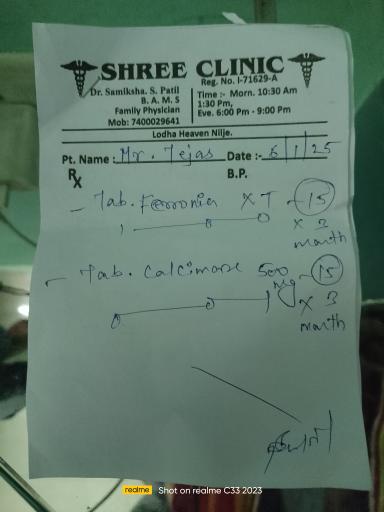 SHREE CLINIC
Reg. No. I-71629-A
Dr. Samiksha. S. Patil
B. A. M. S
Family Physician
Mob: 7400029641
Time :- Morn. 10:30 Am
1:30 Pm,
Eve. 6:00 Pm - 9:00 Pm
Lodha Heaven Nilje.
Pt. Name : Mr. Tejas Date :- 6/1/25
Rx B.P.
- Tab. Ferronia XT - 15
1 0 0 x 3
month
- Tab. Calcimore 500 mg - 15
0 0 1 x 3
month
realme Shot on realme C33 2023